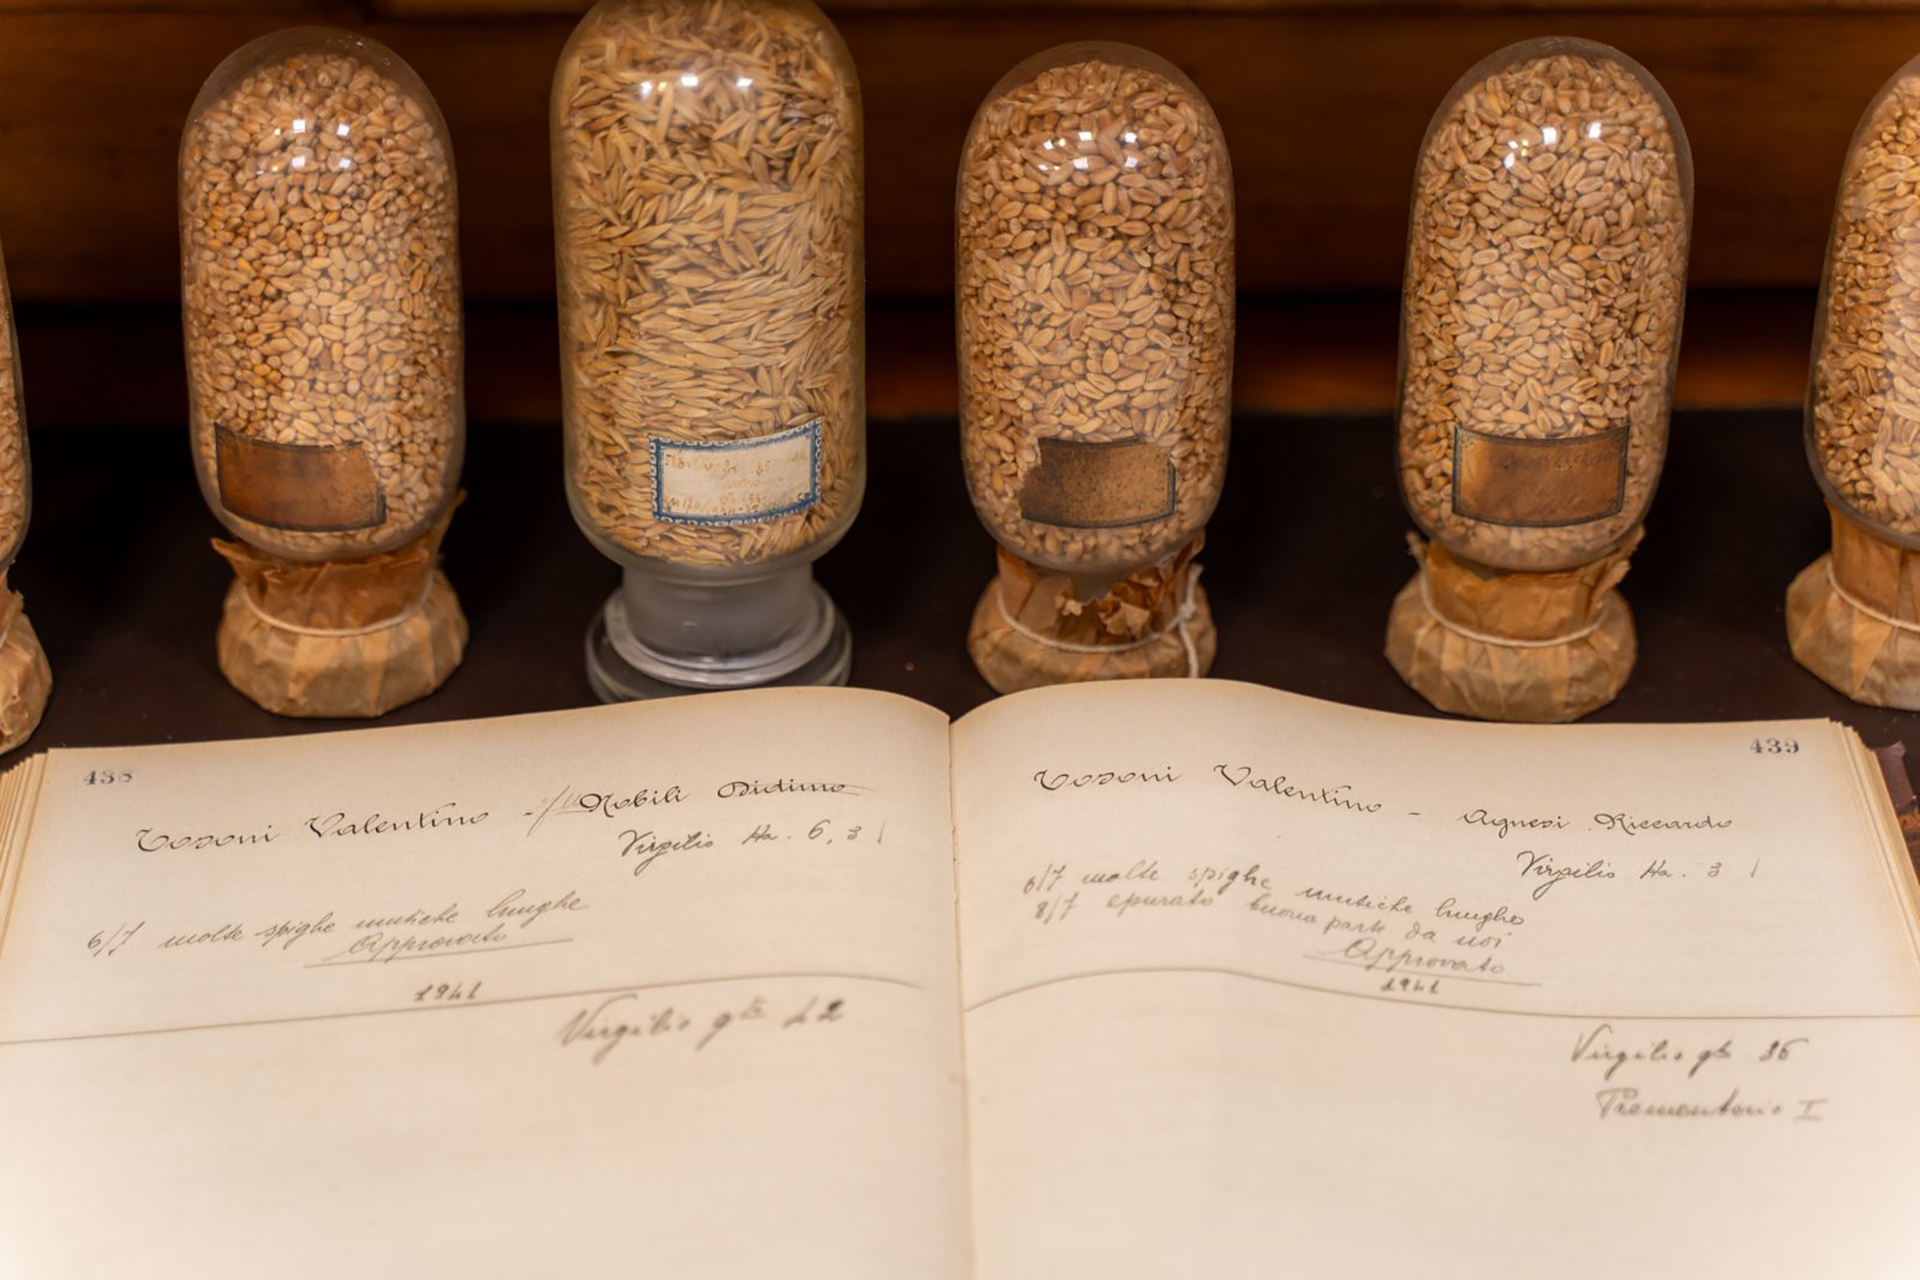 438
Tosoni Valentino - Nobili Didimo
Virgilio Ha. 6,3
6/7 molte spighe mutiche lunghe
Approvato
1941
Virgilio qli 42
439
Tosoni Valentino - Agnesi Riccardo
Virgilio Ha. 3
6/7 molte spighe mutiche lunghe
8/7 epurato buona parte da noi
Approvato
1941
Virgilio qli 36
Tramontano I